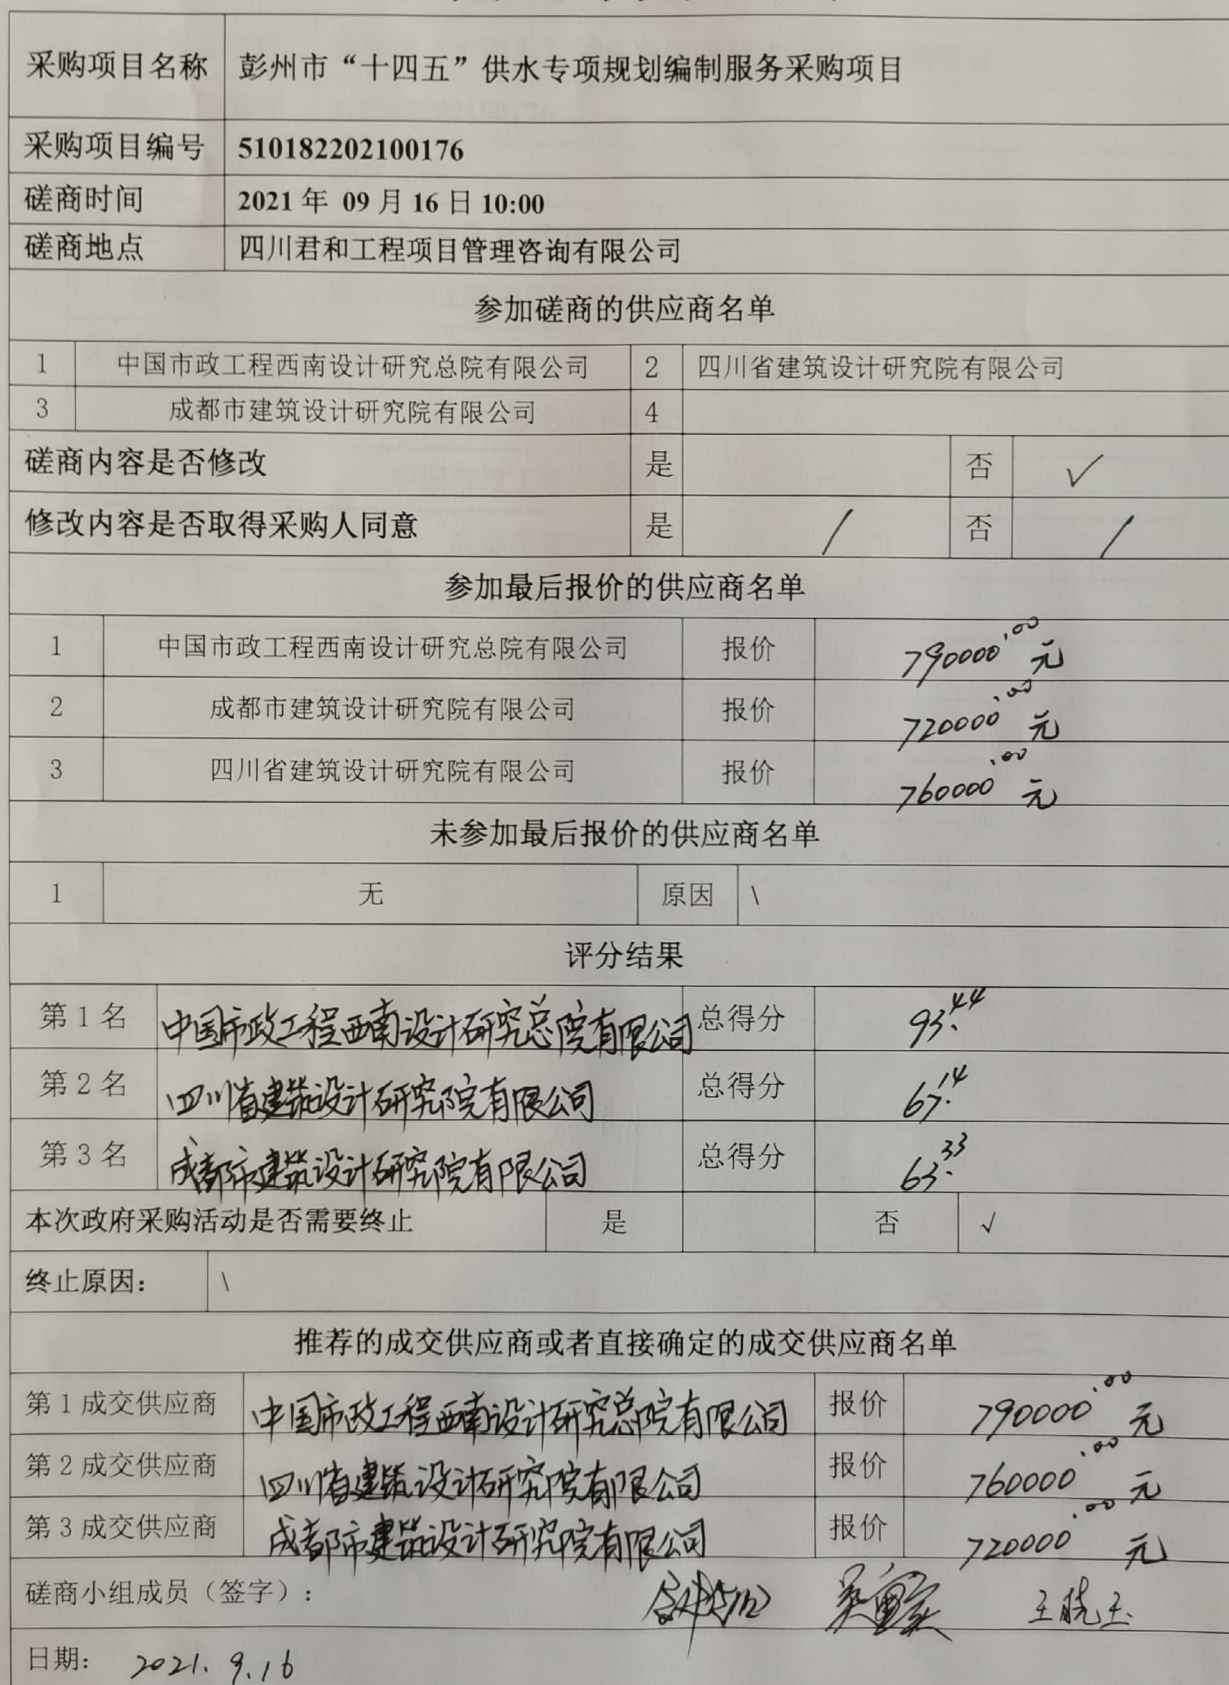 采购项目名称 彭州市“十四五”供水专项规划编制服务采购项目
采购项目编号 510182202100176
磋商时间 2021 年 09 月 16 日 10:00
磋商地点 四川君和工程项目管理咨询有限公司
参加磋商的供应商名单
1 中国市政工程西南设计研究总院有限公司 2 四川省建筑设计研究院有限公司
3 成都市建筑设计研究院有限公司 4
磋商内容是否修改 是 否 √
修改内容是否取得采购人同意 是 / 否 /
参加最后报价的供应商名单
1 中国市政工程西南设计研究总院有限公司 报价 790000.00 元
2 成都市建筑设计研究院有限公司 报价 720000.00 元
3 四川省建筑设计研究院有限公司 报价 760000.00 元
未参加最后报价的供应商名单
1 无 原因 \
评分结果
第 1 名 中国市政工程西南设计研究总院有限公司 总得分 93.44
第 2 名 四川省建筑设计研究院有限公司 总得分 67.14
第 3 名 成都市建筑设计研究院有限公司 总得分 63.33
本次政府采购活动是否需要终止 是 否 √
终止原因： \
推荐的成交供应商或者直接确定的成交供应商名单
第 1 成交供应商 中国市政工程西南设计研究总院有限公司 报价 790000.00 元
第 2 成交供应商 四川省建筑设计研究院有限公司 报价 760000.00 元
第 3 成交供应商 成都市建筑设计研究院有限公司 报价 720000.00 元
磋商小组成员（签字）： 王晓玉
日期： 2021.9.16